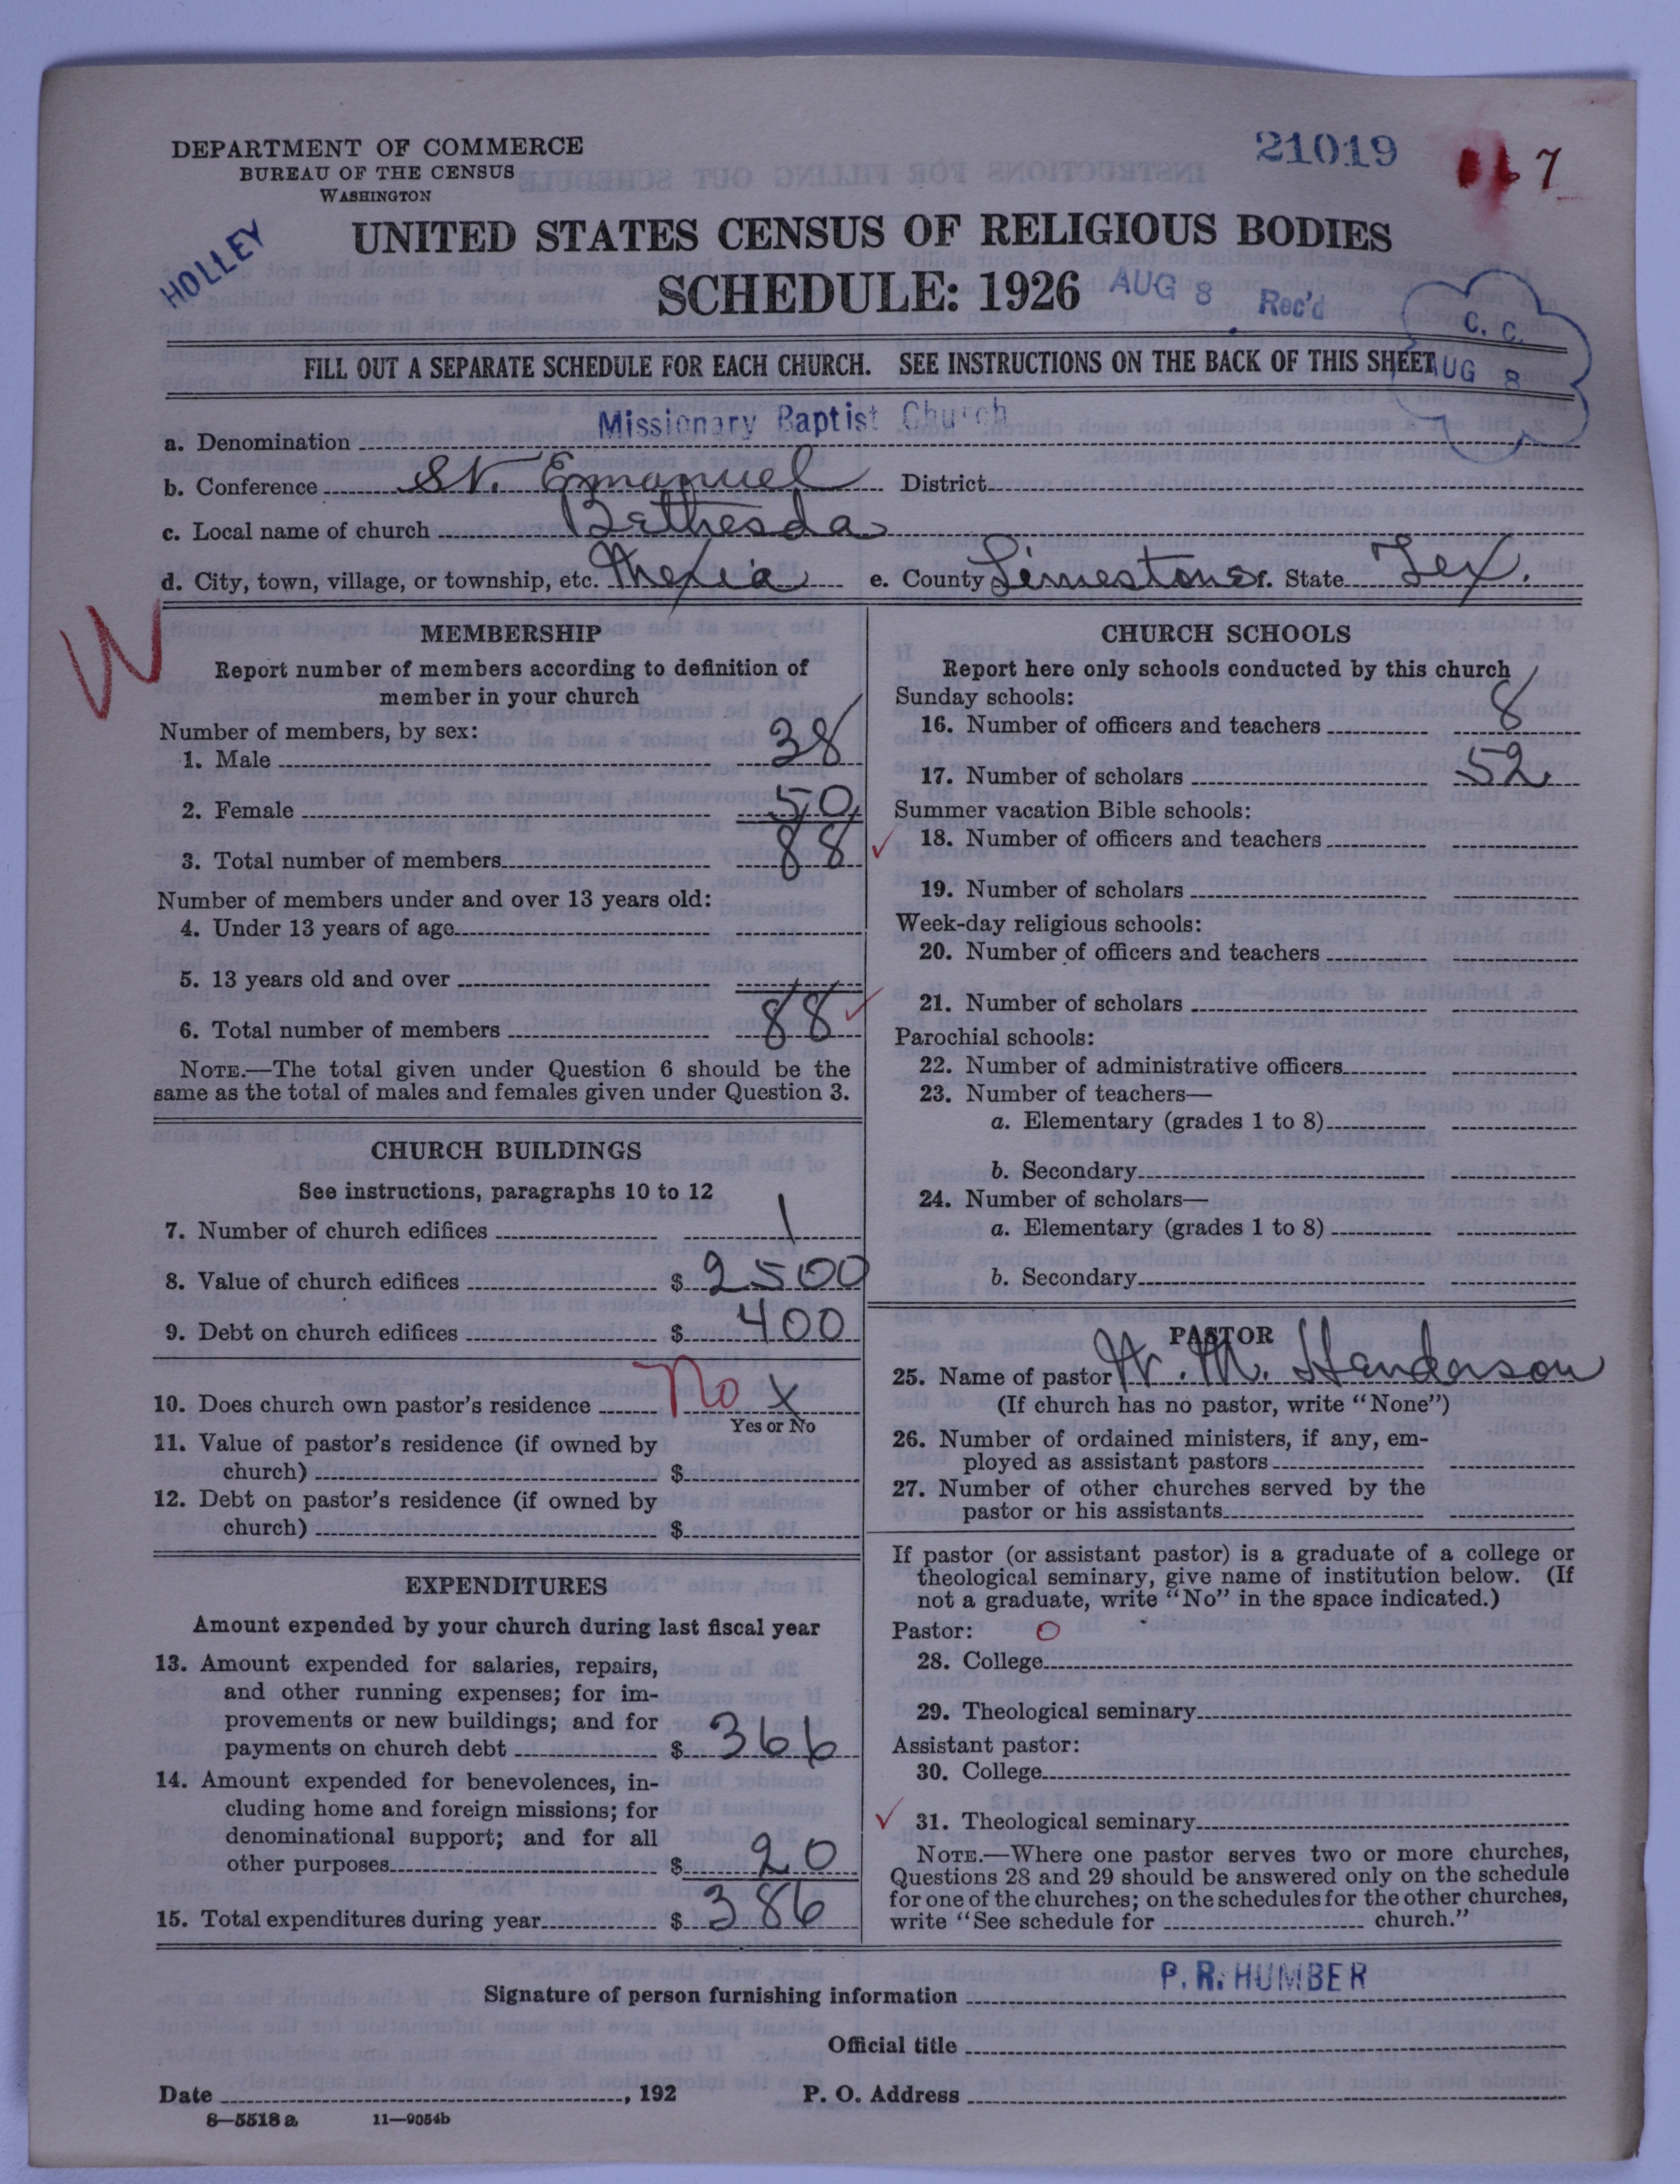 DEPARTMENT OF COMMERCE
BUREAU OF THE CENSUS
WASHINGTON
21019
7
HOLLEY
UNITED STATES CENSUS OF RELIGIOUS BODIES
SCHEDULE: 1926
AUG 8 Rec'd
C. C.
AUG 8
FILL OUT A SEPARATE SCHEDULE FOR EACH CHURCH. SEE INSTRUCTIONS ON THE BACK OF THIS SHEET
a. Denomination Missionary Baptist Church
b. Conference St. Emanuel District
c. Local name of church Bethesda
d. City, town, village, or township, etc. Mexia e. County Limestone f. State Tex.
MEMBERSHIP
Report number of members according to definition of
member in your church
Number of members, by sex:
1. Male 38
2. Female 50
3. Total number of members 88
Number of members under and over 13 years old:
4. Under 13 years of age
5. 13 years old and over
6. Total number of members 88
NOTE.—The total given under Question 6 should be the
same as the total of males and females given under Question 3.
CHURCH BUILDINGS
See instructions, paragraphs 10 to 12
7. Number of church edifices 1
8. Value of church edifices $ 2500
9. Debt on church edifices $ 400
10. Does church own pastor's residence No X
Yes or No
11. Value of pastor's residence (if owned by
church) $
12. Debt on pastor's residence (if owned by
church) $
EXPENDITURES
Amount expended by your church during last fiscal year
13. Amount expended for salaries, repairs,
and other running expenses; for im-
provements or new buildings; and for
payments on church debt $ 366
14. Amount expended for benevolences, in-
cluding home and foreign missions; for
denominational support; and for all
other purposes $ 20
15. Total expenditures during year $ 386
CHURCH SCHOOLS
Report here only schools conducted by this church
Sunday schools:
16. Number of officers and teachers 8
17. Number of scholars 52
Summer vacation Bible schools:
18. Number of officers and teachers
19. Number of scholars
Week-day religious schools:
20. Number of officers and teachers
21. Number of scholars
Parochial schools:
22. Number of administrative officers
23. Number of teachers—
a. Elementary (grades 1 to 8)
b. Secondary
24. Number of scholars—
a. Elementary (grades 1 to 8)
b. Secondary
PASTOR
25. Name of pastor W. M. Handerson
(If church has no pastor, write "None")
26. Number of ordained ministers, if any, em-
ployed as assistant pastors
27. Number of other churches served by the
pastor or his assistants
If pastor (or assistant pastor) is a graduate of a college or
theological seminary, give name of institution below. (If
not a graduate, write "No" in the space indicated.)
Pastor: O
28. College
29. Theological seminary
Assistant pastor:
30. College
31. Theological seminary
NOTE.—Where one pastor serves two or more churches,
Questions 28 and 29 should be answered only on the schedule
for one of the churches; on the schedules for the other churches,
write "See schedule for church."
Signature of person furnishing information P. R. HUMBER
Official title
Date , 192 P. O. Address
8—5518 a 11—9054b